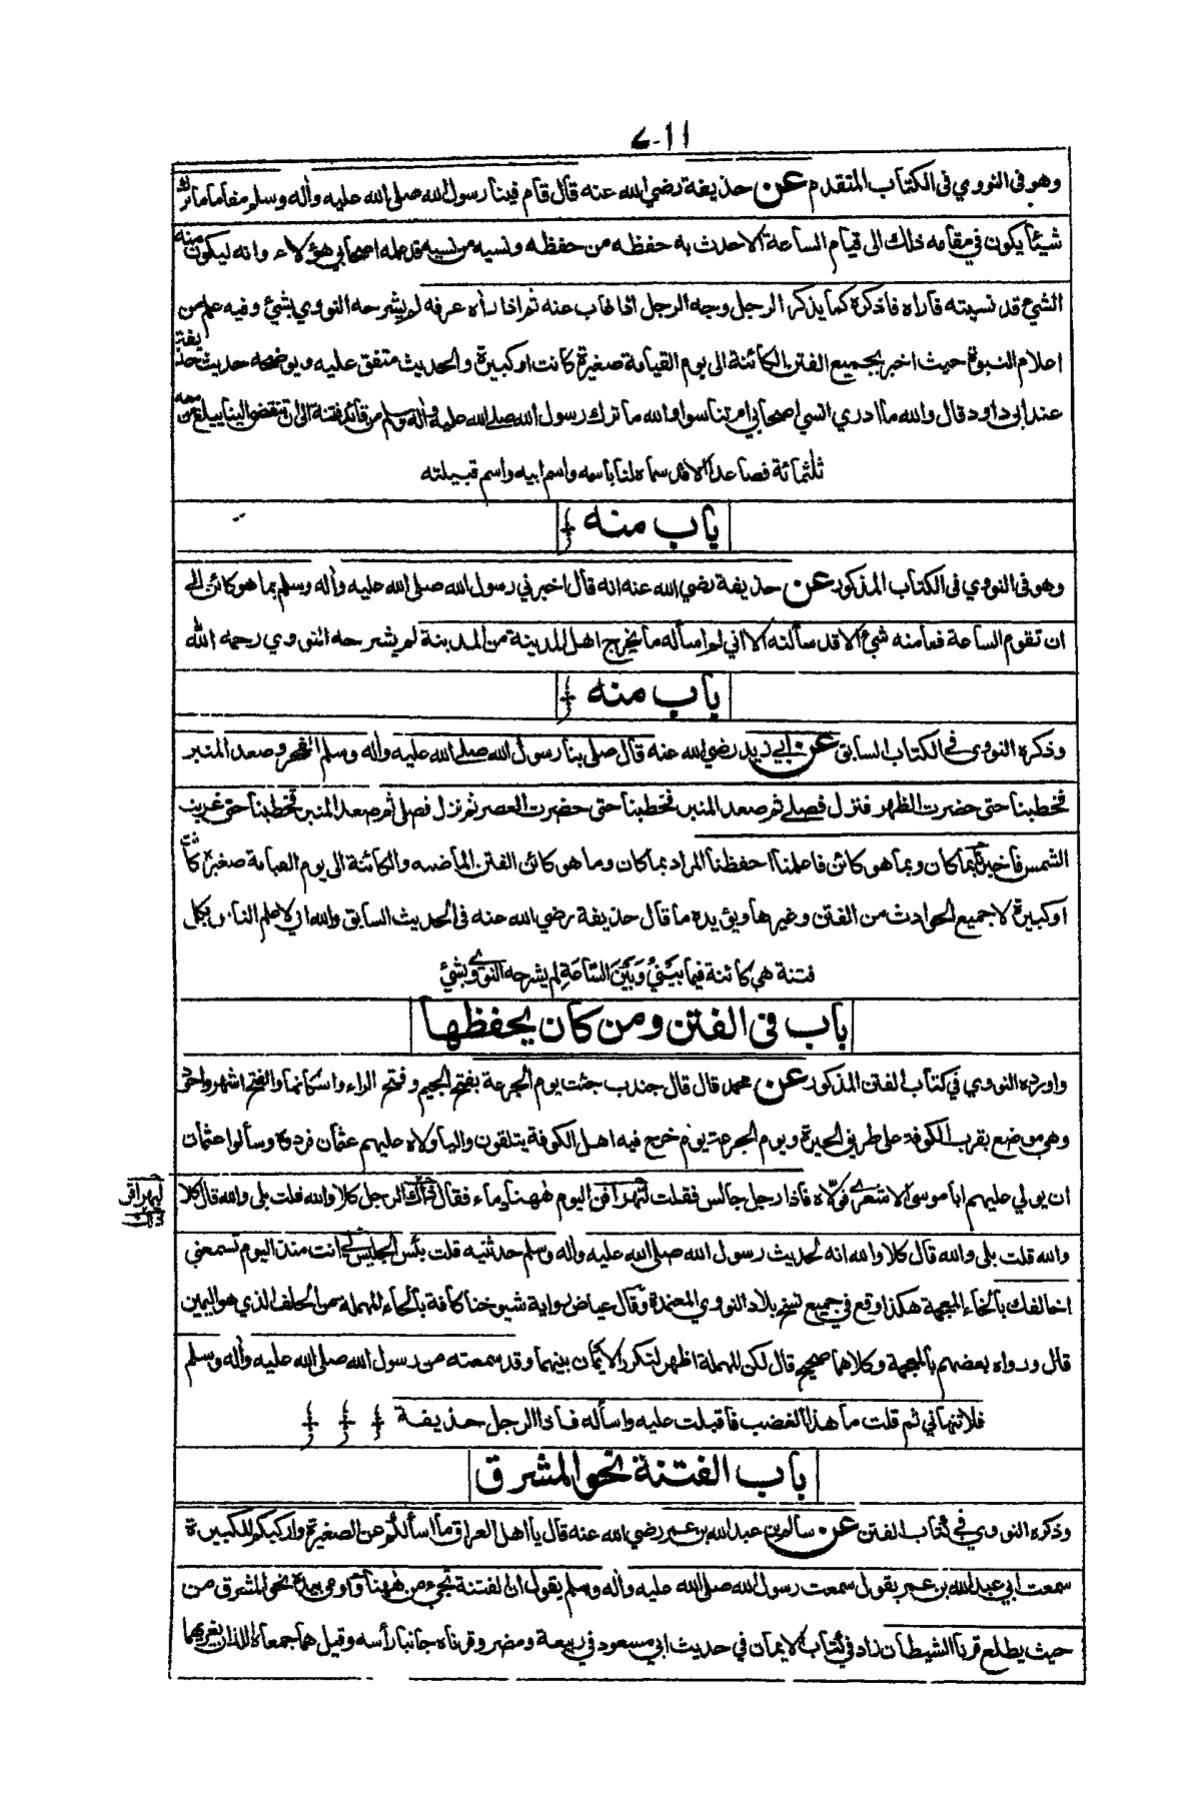 وهو في النووي في الكتاب المتقدم عن حذيفة رضي الله عنه قال قام فينا رسول الله صلى الله عليه وأله وسلم مقاما ما ترك
شيئا يكون في مقامه ذلك الى قيام الساعة الا حدث به حفظه من حفظه ونسيه من نسيه قد علمه اصحابي هؤلاء وانه ليكون منه
الشئ قد نسيته فاراه فاذكره كما يذكر الرجل وجه الرجل اذا غاب عنه ثم اذا رأه عرفه لم يشرحه النووي بشئ وفيه علم من
اعلام النبوة حيث اخبر بجميع الفتن الكائنة الى يوم القيامة صغيرة كانت او كبيرة والحديث متفق عليه ويوضحه حديث حذيفة
عند ابى داود قال والله ما ادري انسي اصحابي ام تناسوا والله ما ترك رسول الله صلى الله عليه وأله وسلم من قائد فتنة الى ان تنقضي الدنيا يبلغ من معه
ثلثمائة فصاعدا الا قد سماه لنا باسمه واسم ابيه واسم قبيلته
باب منه
وهو في النووي في الكتاب المذكور عن حذيفة رضي الله عنه انه قال اخبرني رسول الله صلى الله عليه وأله وسلم بما هو كائن الى
ان تقوم الساعة فما منه شئ الا قد سألته الا اني لم اسأله ما يخرج اهل المدينة من المدينة لم يشرحه النووي رحمه الله
باب منه
وذكره النووي في الكتاب السابق عن ابي زيد رضي الله عنه قال صلى بنا رسول الله صلى الله عليه وأله وسلم الفجر وصعد المنبر
فخطبنا حتى حضرت الظهر فنزل فصلى ثم صعد المنبر فخطبنا حتى حضرت العصر ثم نزل فصلى ثم صعد المنبر فخطبنا حتى غربت
الشمس فاخبرنا بما كان وبما هو كائن فاعلمنا احفظنا المراد بما كان وما هو كائن الفتن الماضيه والكائنة الى يوم القيامة صغيرة كانت
او كبيرة لا جميع الحوادث من الفتن وغيرها ويؤيده ما قال حذيفة رضي الله عنه في الحديث السابق والله اني لاعلم الناس بكل
فتنة هي كائنة فيما بيني وبين الساعة لم يشرحه النووي بشئ
باب في الفتن ومن كان يحفظها
واورده النووي في كتاب الفتن المذكور عن محمد قال قال جندب جئت يوم الجرعة بفتح الجيم وفتح الراء واسكانها والفتح اشهر واجود
وهي موضع بقرب الكوفة على طريق الحيرة ويوم الجرعة يوم خرج فيه اهل الكوفة يتلقون واليا ولاه عليهم عثمان فردوه وسألوا عثمان
ان يولي عليهم ابا موسى الاشعري فولاه فاذا رجل جالس فقلت لتهراقن اليوم ههنا دماء فقال ذاك الرجل كلا والله قلت بلى والله قال كلا
ليهراقن
والله قلت بلى والله قال كلا والله انه لحديث رسول الله صلى الله عليه وأله وسلم حدثنيه قلت بئس الجليس لي انت منذ اليوم تسمعني
اخالفك بالخاء المعجمة هكذا وقع في جميع نسخ بلاد النووي المعتمدة وقال عياض رواية شيوخنا كافة بالحاء المهملة من الحلف الذي هو اليمين
قال ورواه بعضهم بالمعجمة وكلاهما صحيح قال لكن المهملة اظهر لتكرر الايمان بينهما وقد سمعته من رسول الله صلى الله عليه وأله وسلم
فلا تنهاني ثم قلت ما هذا الغضب فاقبلت عليه واسأله فاذا الرجل حذيفة
باب الفتنة نحو المشرق
وذكره النووي في كتاب الفتن عن سالم بن عبد الله بن عمر رضي الله عنه قال يا اهل العراق ما اسألكم عن الصغيرة واركبكم للكبيرة
سمعت ابي عبد الله بن عمر يقول سمعت رسول الله صلى الله عليه وأله وسلم يقول ان الفتنة تجئ من ههنا واومى بيده نحو المشرق من
حيث يطلع قرنا الشيطان زاد في كتاب الايمان في حديث ابي مسعود في ربيعة ومضر وقرناه جانبا رأسه وقيل هما جمعاه اللذان يغريهما